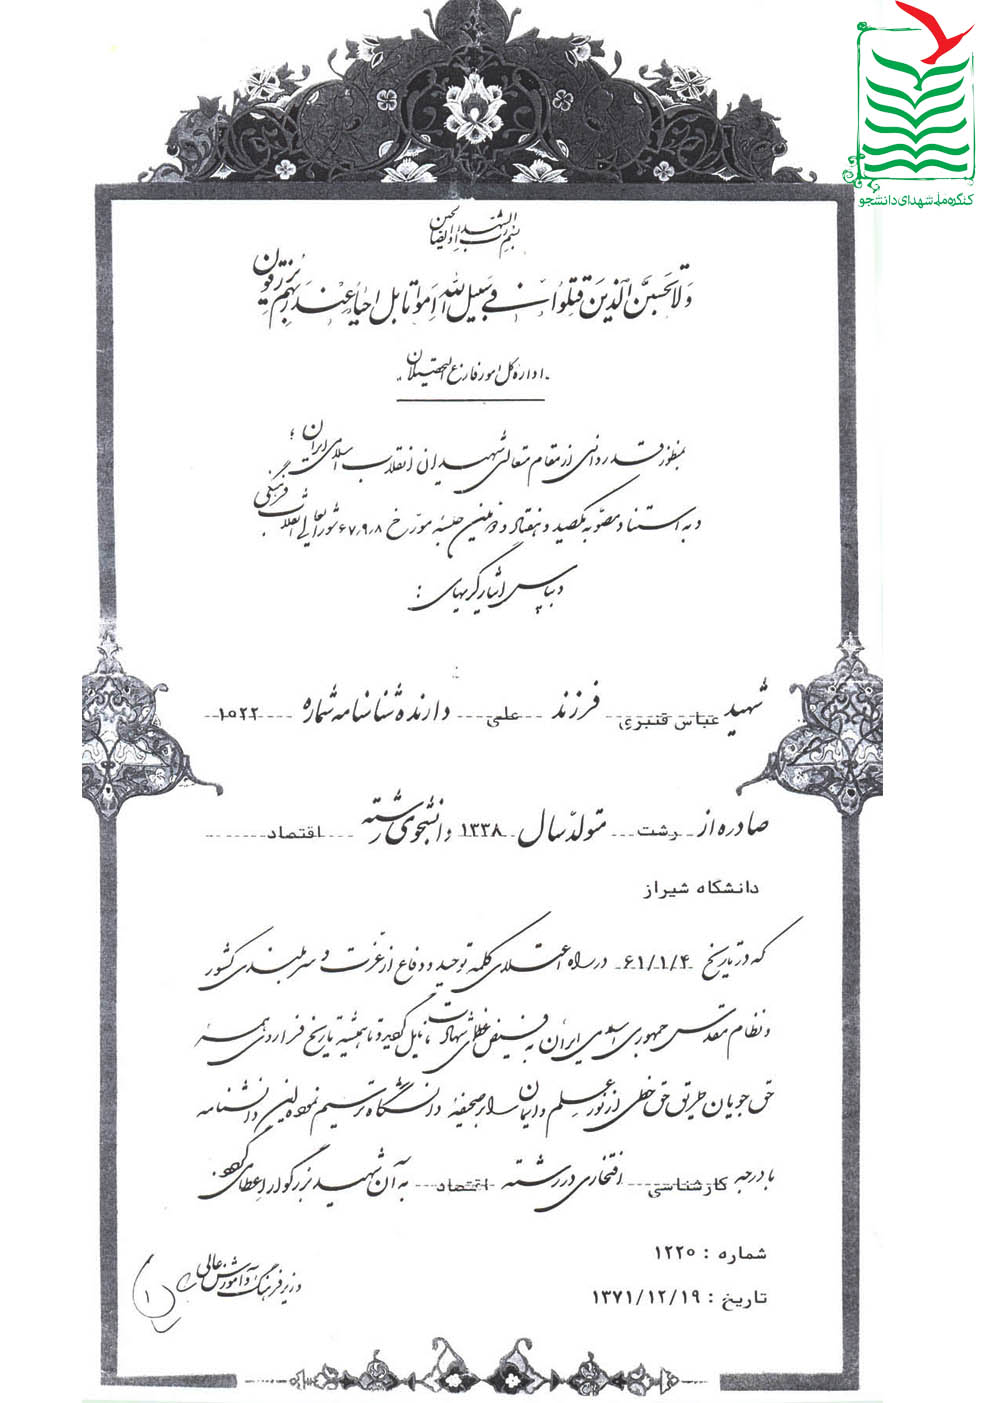 کنگره ملی شهدای دانشجو
بسم رب الشهداء و الصالحین
ولا تحسبن الذین قتلوا فی سبیل الله امواتا بل احیاء عند ربهم یرزقون
اداره کل امور فارغ التحصیلان
بمنظور قدردانی از مقام متعالی شهیدان انقلاب اسلامی ایران ؛
و به استناد مصوبه یکصد و هفتاد و دومین جلسه مورخ ۶۷٫۹٫۸ شورایعالی انقلاب فرهنگی
و بپاس ایثارگریهای :
شهید عباس قنبری فرزند علی دارنده شناسنامه شماره ۱۵۲۲
صادره از رشت متولد سال ۱۳۳۸ دانشجوی رشته اقتصاد
دانشگاه شیراز
که در تاریخ ۶۱/۱/۴ در راه اعتلای کلمه توحید و دفاع از عزت و سربلندی کشور
و نظام مقدس جمهوری اسلامی ایران به فیض عظمای شهادت نایل گردیده و تا همیشه تاریخ فرا روی همه
حق جویان طریق حق خطی از نور علم و ایمان را بر صحیفه دانشگاه ترسیم نموده این دانشنامه
با درجه کارشناسی افتخاری در رشته اقتصاد به آن شهید بزرگوار اعطا میگردد.
شماره : ۱۲۲۰
وزیر فرهنگ و آموزش عالی
تاریخ : ۱۳۷۱/۱۲/۱۹